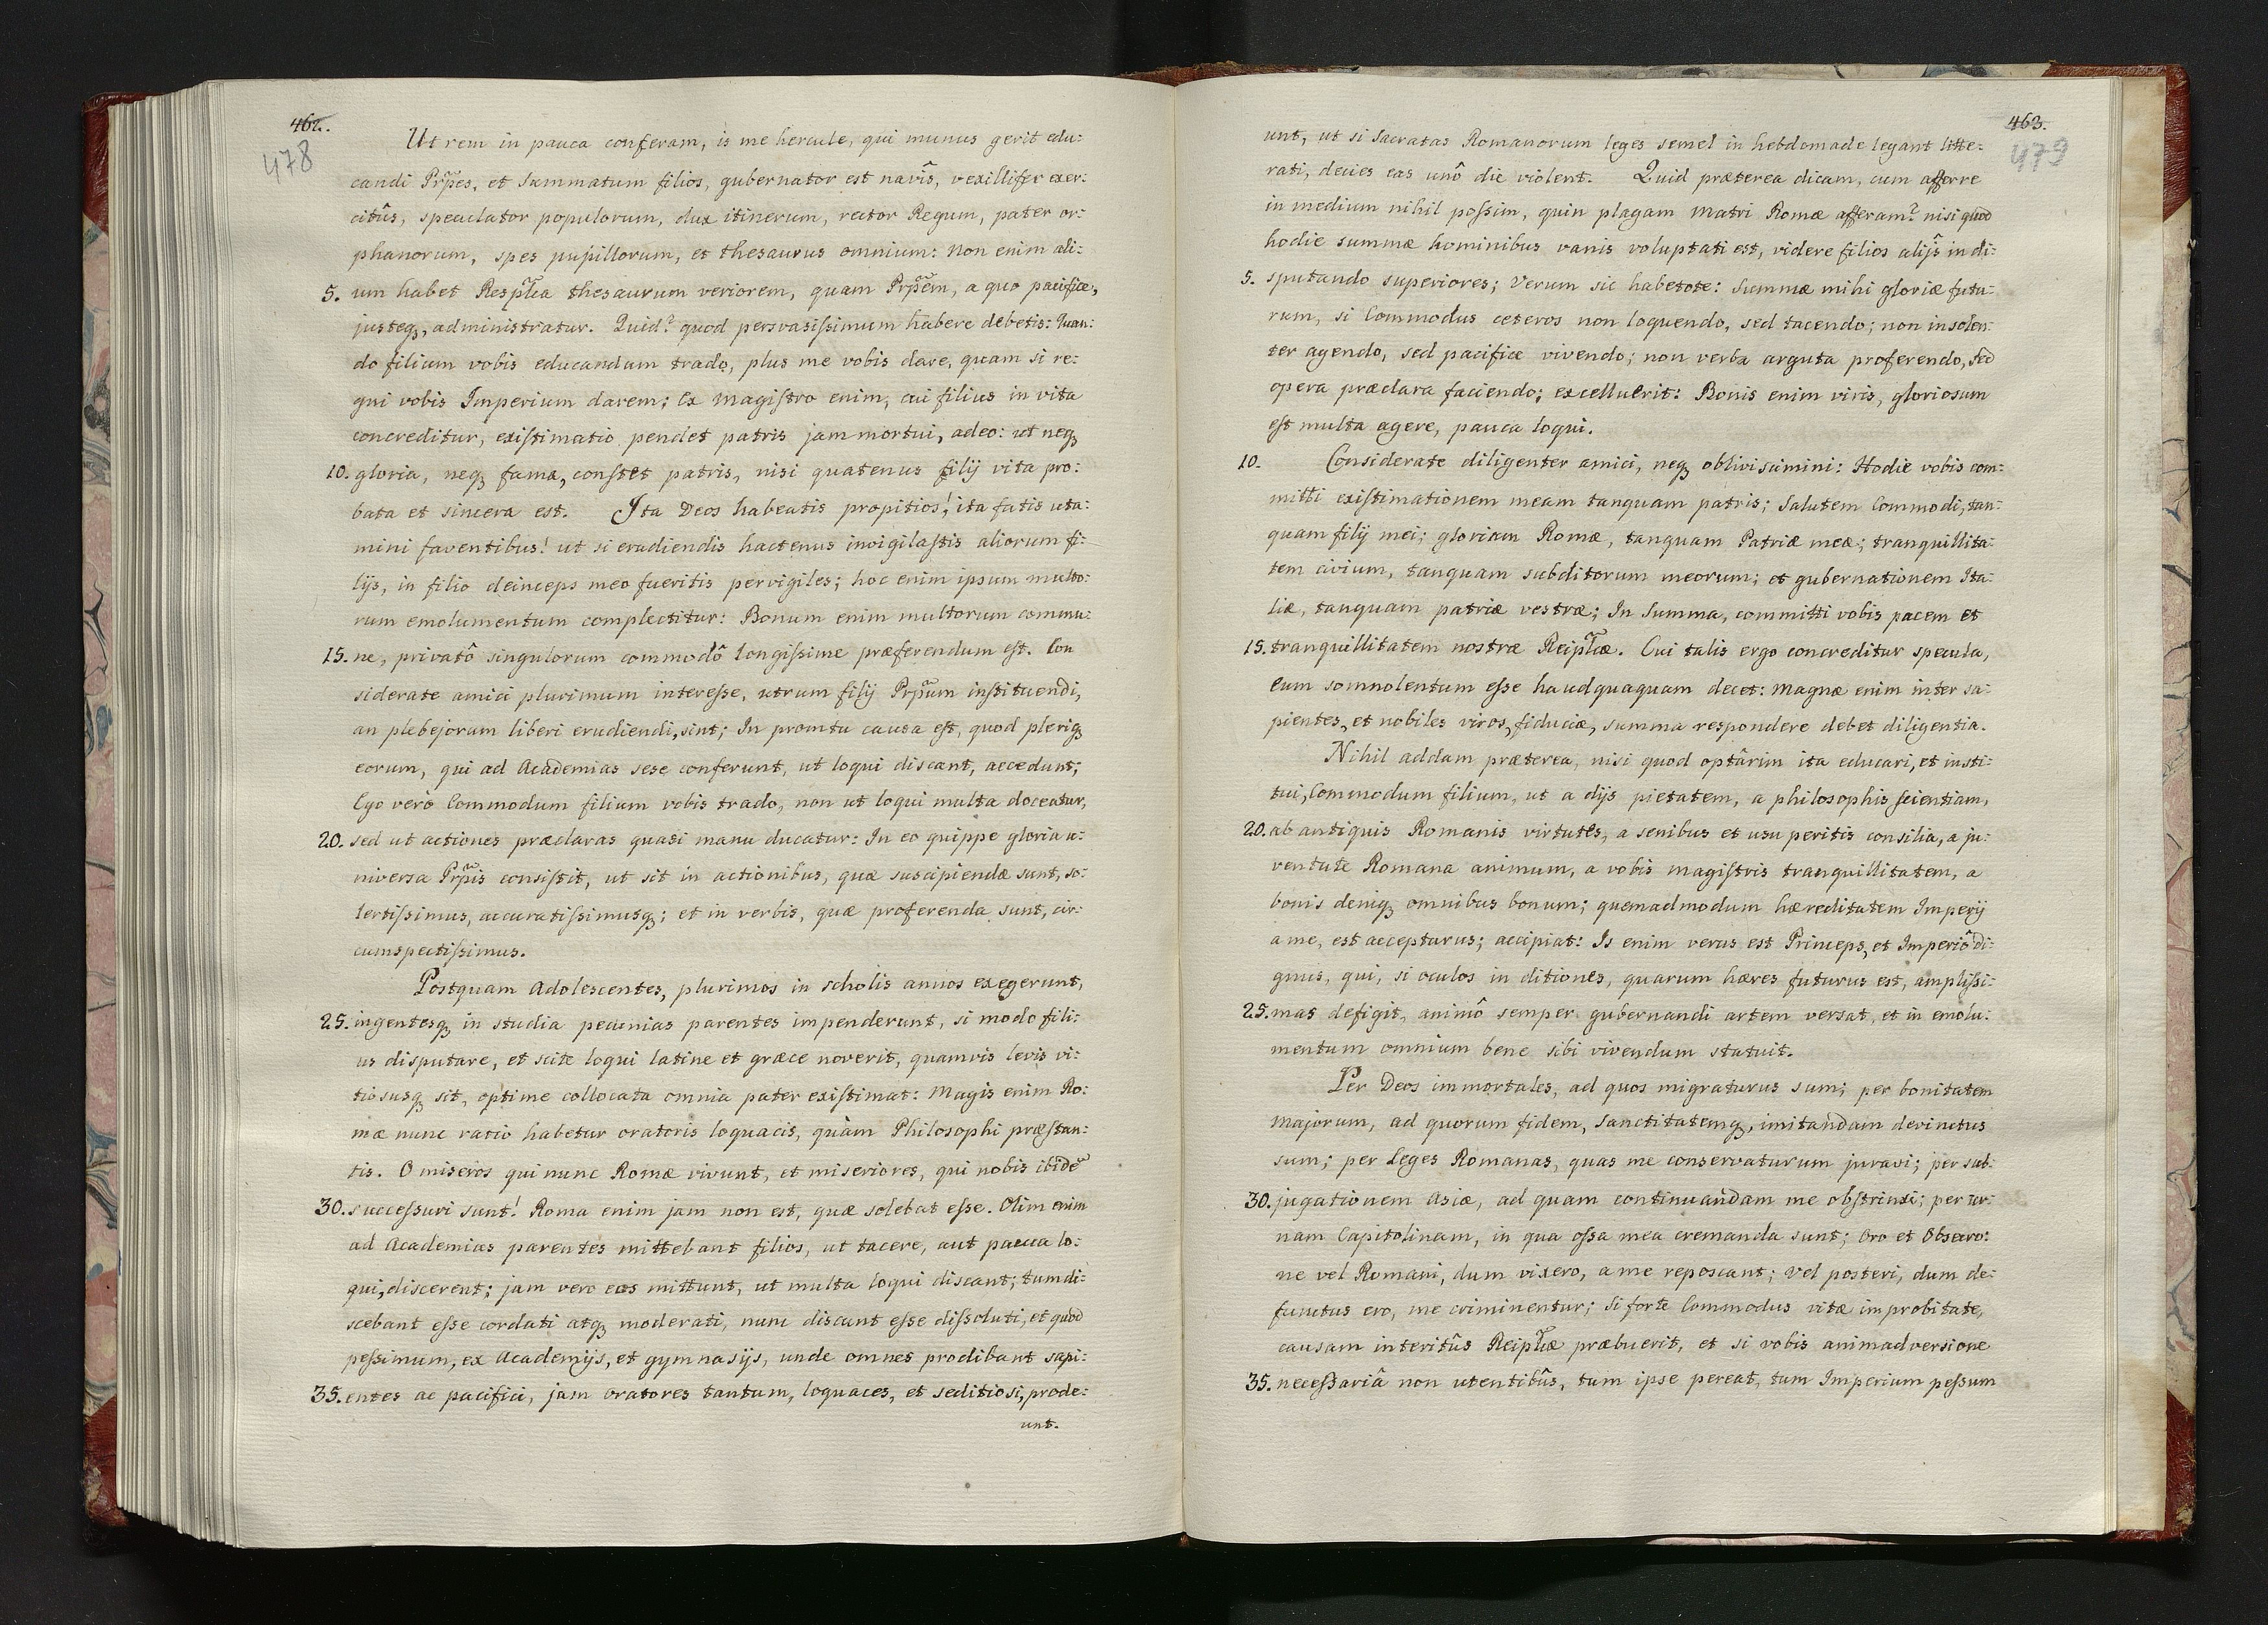 462.
478
Ut rem in pauca conferam, is me hercule, qui munus gerit edu:
candi Prp̃es, et Summatum filios, gubernator est navîs, vexillifer exer:
citûs, speculator populorum, dux itinerum, rector Regum, pater or:
phanorum, spes pupillorum, et thesaurus omnium: Non enim ali:
5. um habet Resp̃lca thesaurum veriorem, quam Prp̃em, a quo pacifice,
justeq, administratur. Quid? quod persvasissimum habere debetis: Quan:
do filium vobis educandum trado, plus me vobis dare, quam si re:
gni vobis Imperium darem; Ex Magistro enim, cui filius in vita
concreditur, existimatio pendet patris jam mortui, adeo: ut neq
10. gloria, neq fama, constet patris, nisi quatenus filij vita pro:
bata et sincera est. Ita Deos habeatis propitios! ita fatis uta:
mini faventibus! ut si erudiendis hactenus invigilastis aliorum fi:
lijs, in filio deinceps meo fueritis pervigiles; hoc enim ipsum multo:
rum emolumentum complectitur: Bonum enim multorum commu:
15. ne, privatô singulorum commodô longissime præferendum est. Con
siderate amici plurimum interesse, utrum filij Prp̃um instituendi,
an plebejorum liberi erudiendi, sint; In promtu causa est, quod pleriq
eorum, qui ad Academias sese conferunt, ut loqui discant, accedunt;
Ego verò Commodum filium vobis trado, non ut loqui multa doceatur,
20. sed ut actiones præclaras quasi manu ducatur: In eo quippe gloria u:
niversa Prp̃is consistit, ut sit in actionibus, quæ suscipiendæ sunt, so:
lertissimus, accuratissimusq; et in verbis, quæ proferenda sunt, cir:
cumspectissimus.
Postquam Adolescentes, plurimos in scholis annos exegerunt,
25. ingentesq in studia pecunias parentes impenderunt, si modo fili:
us disputare, et scite loqui latine et græce noverit, quamvis levis vi:
tiosusq sit, optime collocata omnia pater existimat: Magis enim Ro:
mæ nunc ratio habetur oratoris loquacis, quàm Philosophi præstan:
tis. O miseros qui nunc Romæ vivunt, et miseriores, qui nobis ibidẽ
30. successuri sunt! Roma enim jam non est, quæ solebat esse. Olim enim
ad Academias parentes mittebant filios, ut tacere, aut pauca lo:
qui, discerent; jam vero eos mittunt, ut multa loqui discant; tum di:
scebant esse cordati atq moderati, nunc discunt esse dissoluti, et quod
pessimum, ex Academijs, et gymnasijs, unde omnes prodibant sapi:
35. entes ac pacifici, jam oratores tantum, loquaces, et seditiosi, prode:
unt.
463.
479
unt, ut si Sacratas Romanorum leges semel in hebdomade legant litte:
rati, decies eas unô die violent. Quid præterea dicam, cum afferre
in medium nihil possim, quin plagam Matri Romæ afferam? nisi quod
hodie summæ hominibus vanis voluptati est, videre filios alijs in di:
5. sputando superiores; Verum sic habetote: Summæ mihi gloriæ futu:
rum, si Commodus ceteros non loquendo, sed tacendo; non insolen:
ter agendo, sed pacifice vivendo; non verba arguta proferendo, sed
opera præclara faciendo; excelluerit: Bonis enim viris, gloriosum
est multa agere, pauca loqui.
10. Considerate diligenter amici, neq obliviscimini: Hodie vobis com:
mitti existimationem meam tanquam patris; Salutem Commodi, tan:
quam filij mei; gloriam Romæ, tanquam Patriæ meæ; tranquillita:
tem civium, tanquam subditorum meorum; et gubernationem Ita:
liæ, tanquam patriæ vestræ; In Summa, committi vobis pacem et
15. tranquillitatem nostræ Reip̃lcæ. Cui talis ergo concreditur specula,
eum somnolentum esse haudquaquam decet: Magnæ enim inter sa:
pientes, et nobiles viros, fiduciæ, summa respondere debet diligentia.
Nihil addam præterea, nisi quod optârim ita educari, et insti:
tui, Commodum filium, ut a dijs pietatem, a philosophis scientiam,
20. ab antiquis Romanis virtutes, a senibus et usu peritis consilia, a ju:
ventute Romana animum, a vobis magistris tranquillitatem, a
bonis deniq omnibus bonum; quemadmodum hæreditatem Imperij
a me, est accepturus; accipiat: Is enim verus est Princeps, et Imperiô di:
gnus, qui, si oculos in ditiones, quarum hæres futurus est, amplissi:
25. mas defigit, animô semper gubernandi artem versat, et in emolu:
mentum omnium bene sibi vivendum statuit.
Per Deos immortales, ad quos migraturus sum; per bonitatem
Majorum, ad quorum fidem, Sanctitatemq, imitandam devinctus
sum; per Leges Romanas, quas me conservaturum juravi; per sub:
30. jugationem Asiæ, ad quam continuandam me obstrinxi; per ur:
nam Capitolinam, in qua ossa mea cremanda sunt; Oro et Obsecro:
ne vel Romani, dum vixero, a me reposcant; Vel posteri, dum de:
functus ero, me criminentur; Si forte Commodus vitæ improbitate,
causam interitûs Reip̃lcæ præbuerit, et si vobis animadversione
35. necessariâ non utentibûs, tum ipse pereat, tum Imperium pessum